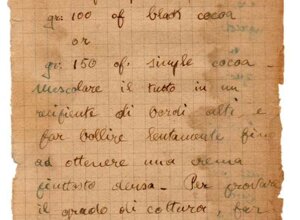 gr: 100 of blak cocoa
or
gr: 150 of: simple cocoa -
Muscolare il tutto in un
recipiente di bordi alti e
far bollire lentamente fino
ad ottenere una crema
piuttosto densa. Per provare
il grado di cottura, far